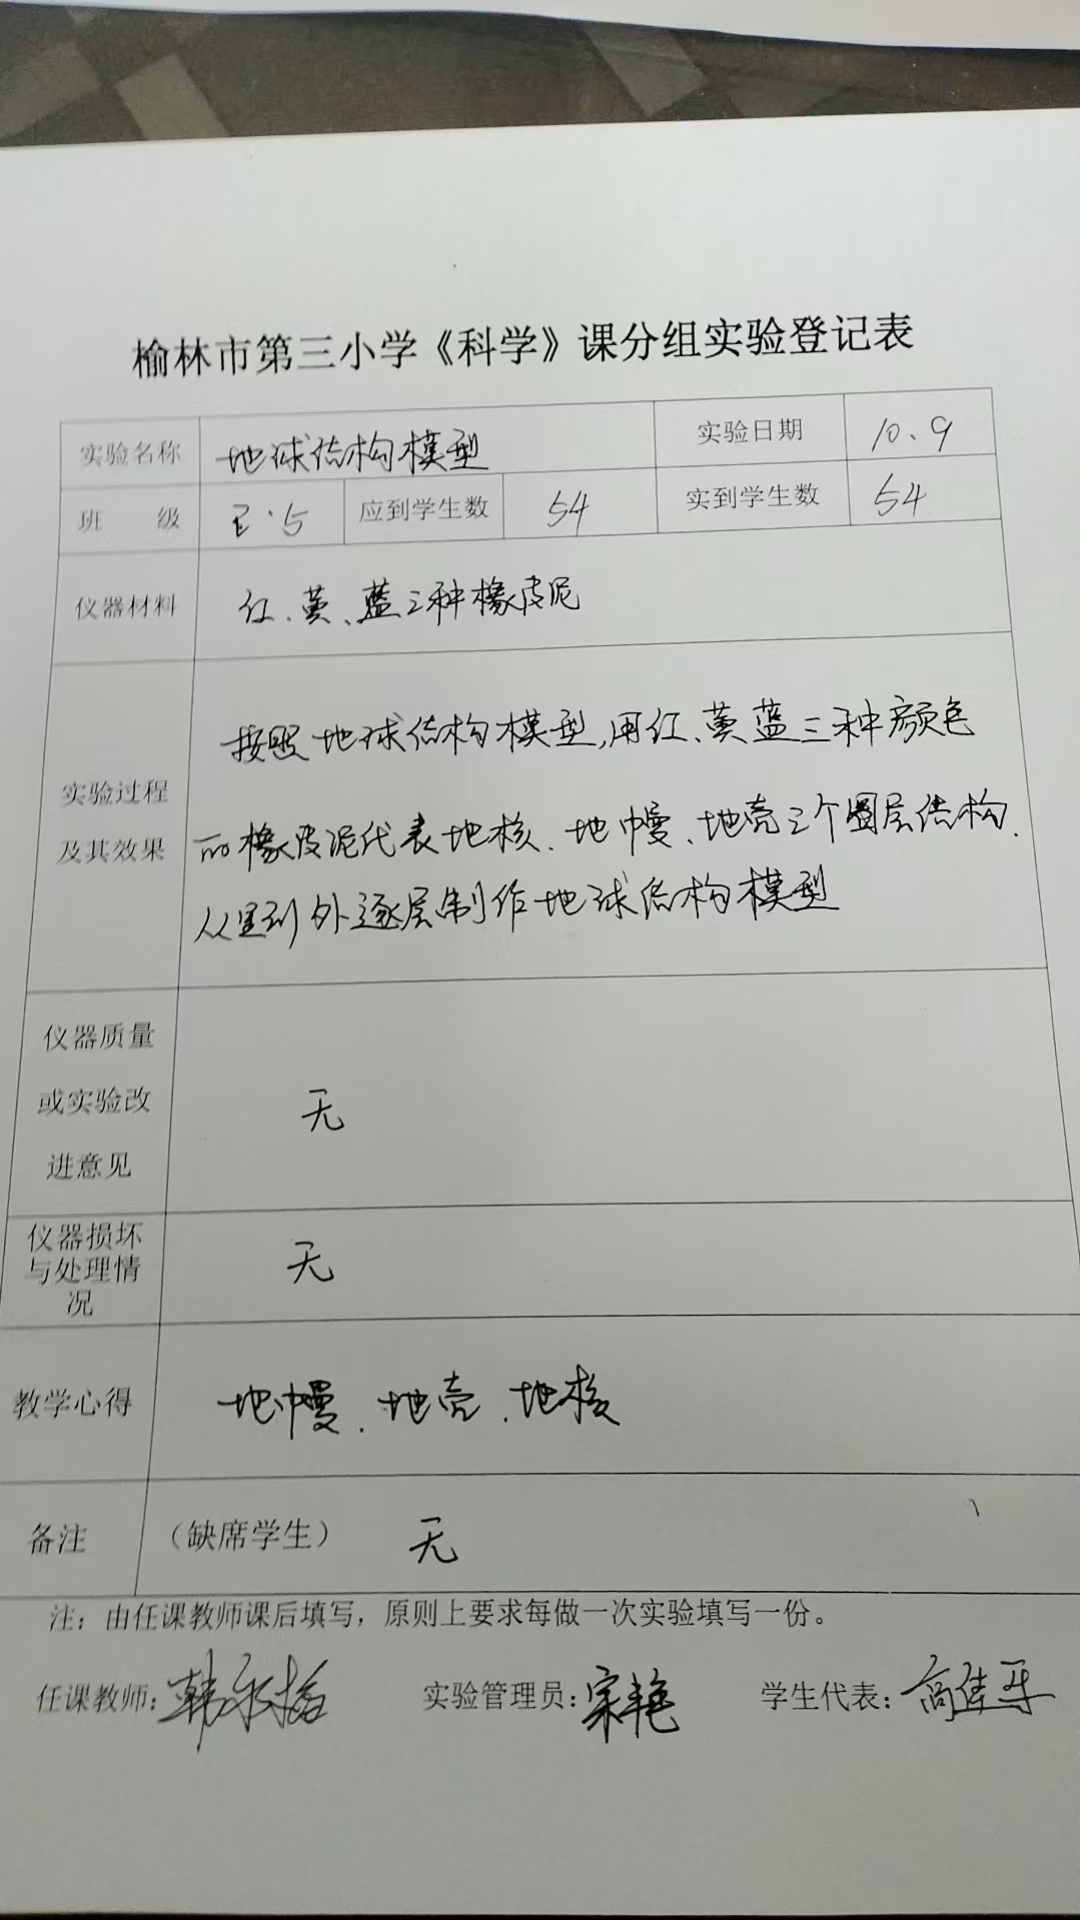 榆林市第三小学《科学》课分组实验登记表
实验名称 地球结构模型 实验日期 10、9
班 级 五·5 应到学生数 54 实到学生数 54
仪器材料 红、黄、蓝三种橡皮泥
实验过程
及其效果
按照地球结构模型,用红、黄蓝三种颜色
的橡皮泥代表地核、地幔、地壳三个圈层结构、
从里到外逐层制作地球结构模型
仪器质量
或实验改
进意见
无
仪器损坏
与处理情
况
无
教学心得 地幔、地壳、地核
备注 (缺席学生) 无
注：由任课教师课后填写，原则上要求每做一次实验填写一份。
任课教师: 韩 实验管理员: 宋艳 学生代表: 高佳